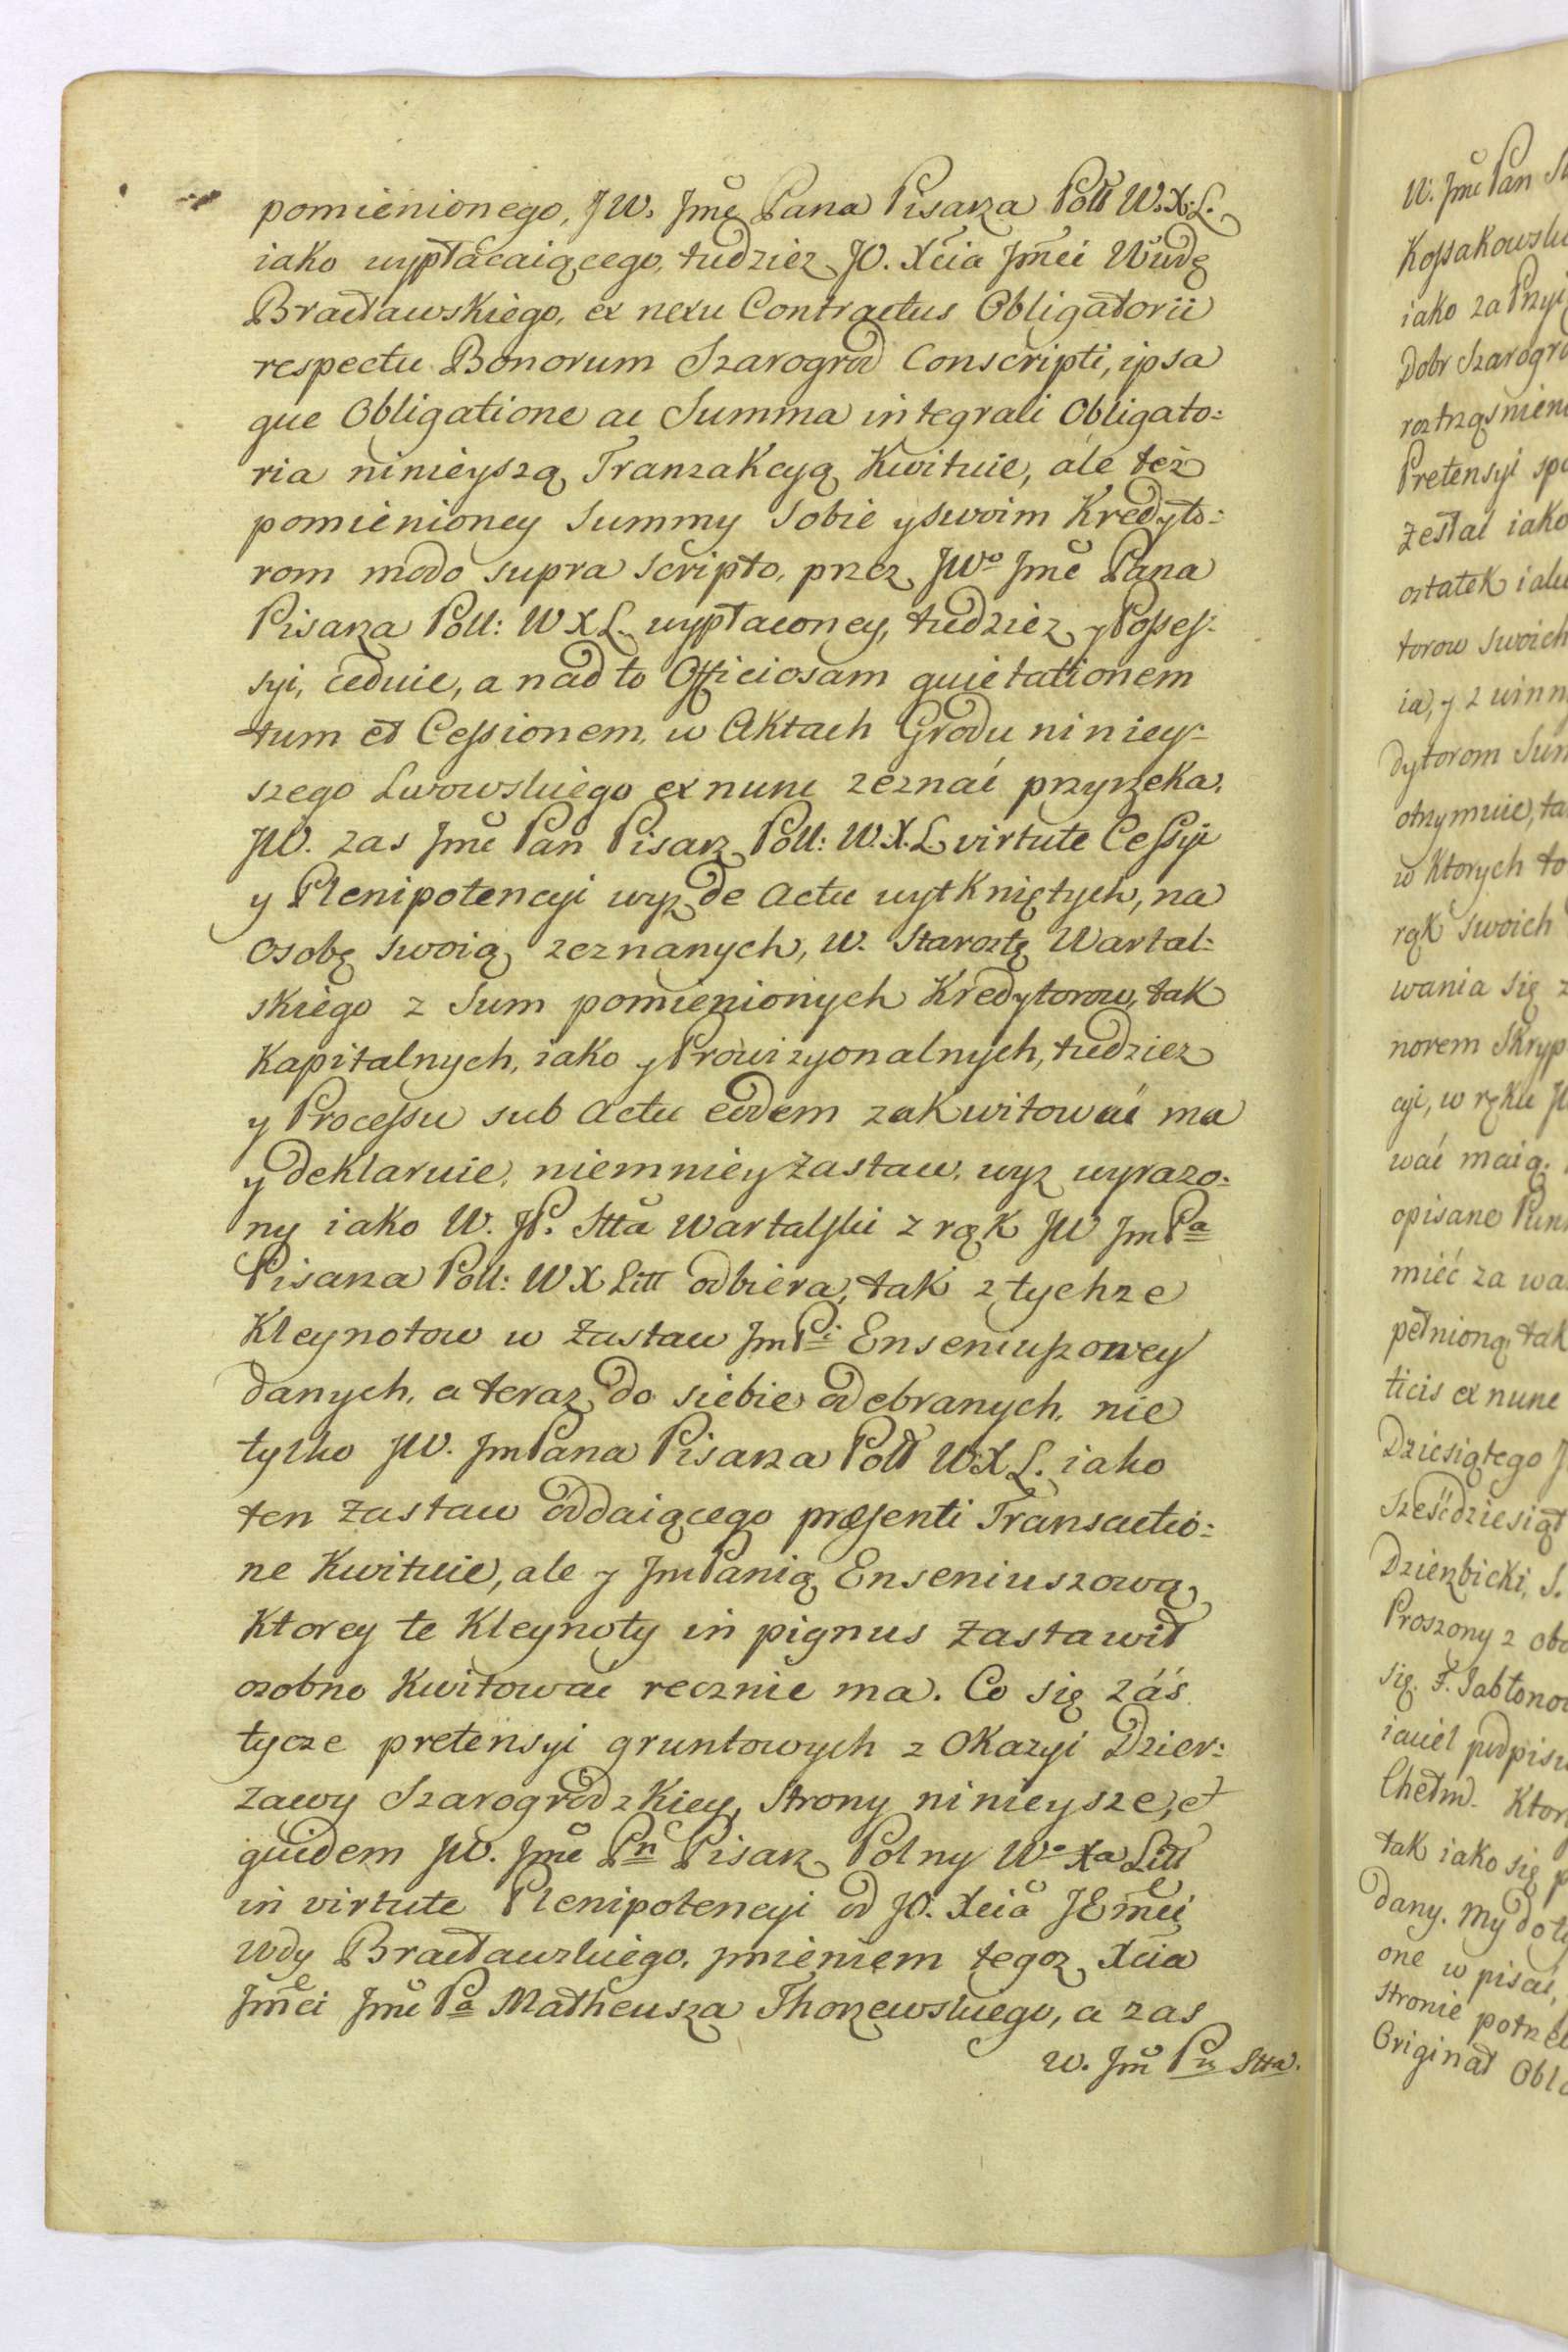 pomienionego, JW. Jmć Pana Pisarza Poll W.X.L.
iako wypłacaiącego, tudziez JO. Xcia Jmci Wwdę
Bracławskiego, ex nexu Contractus Obligatorii
respectu Bonorum Szarogrod Conscripti, ipsa
que Obligatione ac Summa integrali Obligato:
ria ninieyszą Tranzakcyą Kwituie, ale też
pomienioney Summy Sobie y swoim Kredyto:
rom modo supra scripto, przez JWo Jmć Pana
Pisarza Poll: W X L. wypłaconey, tudziez y Posses:
syi, ceduie, a nad to Officiosam quietationem
tum et Cessionem, w Aktach Grodu niniey:
szego Lwowskiego ex nunc zeznać przyrzeka.
JW. zas Jmć Pan Pisarz Poll: W.X.L. virtute Cessyi
y Plenipotencyi wyz de Actu wytkniętych, na
osobę swoią zeznanych, W. Starostę Wartal:
skiego z Sum pomienionych Kredytorow, tak
Kapitalnych, iako y Prowizyonalnych, tudziez
y Processu sub Actu eodem zakwitować ma
y deklaruie, niemniey Zastaw, wyz wyrazo:
ny iako W. JP. Stta Wartalski z rąk JW JmPa
Pisarza Poll: W X Litt odbiera, tak z tychze
Kleynotow w Zastaw JmPi Enseniuszowey
danych, a teraz do siebie odebranych, nie
tylko JW. JmPana Pisarza Poll W.X L. iako
ten Zastaw oddaiącego præsenti Transactio:
ne Kwituie, ale y JmPanią Enseniuszową
Ktorey te Kleynoty in pignus Zastawił
osobno Kwitować ręcznie ma. Co się záś
tycze pretensyi gruntowych z Okazyi Dzier:
zawy Szarogrodzkiey, Strony ninieysze, et
quidem JW. Jmć Pn Pisarz Polny Wo Xa Litt
in virtute Plenipotencyi od JO. Xcia JEmci
Wdy Bracławskiego, imieniem tegoz Xcia
Jmci Jmć Pa Matheusza Thorzewskiego, a zas
W. Jmć Pn Stta.
W. Jmć Pan
Kossakowski
iako za Przyi
Dobr Szarogro
roztrząsnien
Pretensyi spo
Zestał iako
ostatek iako
torow swoich
ia, y z winn
dytorom Sum
otrzymuie, ta
w Ktorych to
rąk swoich
wania się z
norem Skryp
cyi, w ręku JW
wać maią.
opisane Pun
mieć za wa
pełnioną, tak
ticis ex nunc
Dziesiątego
Sześćdziesiąt
Dzierzbicki, S.
Proszony z obo
się. F. Jabłonow
iaciel podpisu
Chełm. Ktor
tak iako się p
dany. My do ty
one wpisać,
Stronie potrzeb
Originał Obl